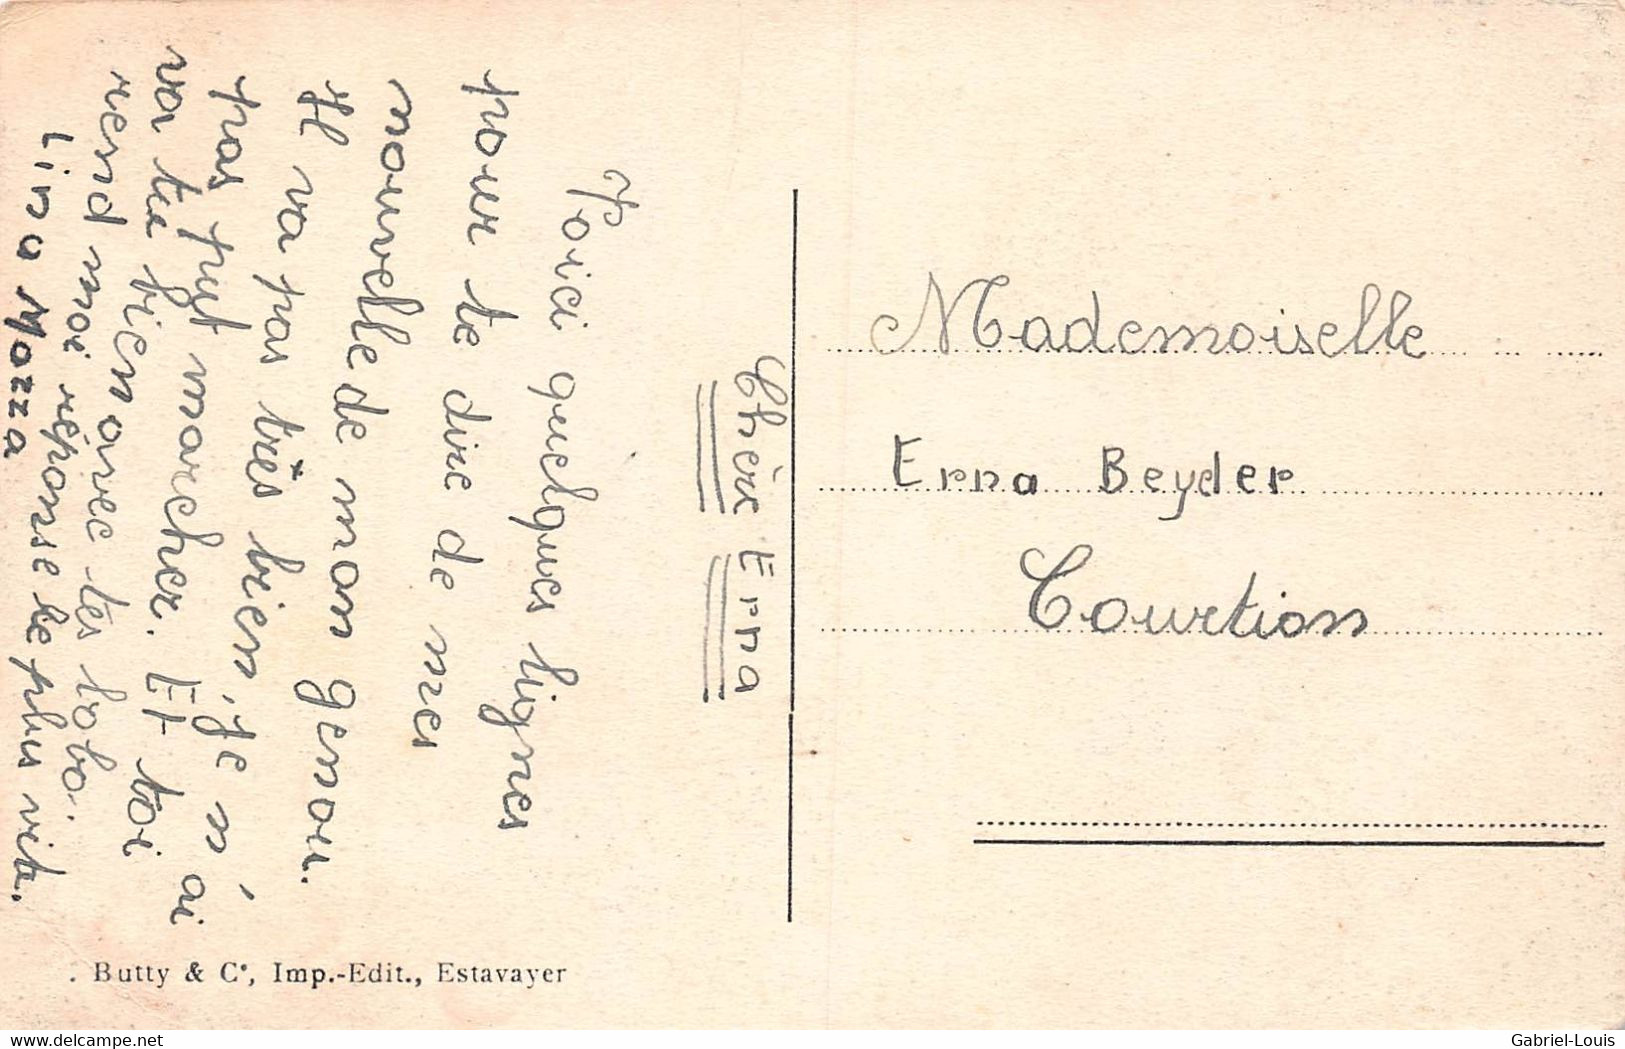 Chère Erna
Voici quelques lignes
pour te dire de mes
nouvelle de mon genou.
Il va pas très bien, je n'ai
pas put marcher. Et toi
va tu bien avec tes bobo.
rend moi réponse le plus vite.
Lina Mozza
Mademoiselle
Erna Beyeler
Courtion
. Butty & Cᵉ, Imp.-Edit., Estavayer
delcampe.net
Gabriel-Louis